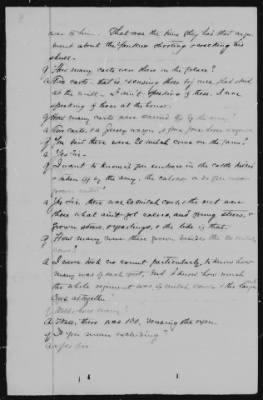 was to him. That was the time they had that argument
about the Yankees shooting & cracking his
skull.
Q How many carts were there on the place?
A Two carts, that is counting those by one, that stood
at the mill. I ain't speaking of those. I was
speaking of those at the house.
Q How many carts were carried off by the army?
A Two carts, & a Jersey wagon, & four four horse wagons.
Q You said there were 20 milch cows on the farm?
A Yes Sir.
Q I want to know if you embrace in the cattle
taken off by the army, the calves or do you mean
grown cattle?
A No Sir, there was 20 milch cows, & the rest were
those what ain't got calves, and young steers, &
grown steers, & yearlings, & the like of that.
Q How many were there grown besides the 20 milch
cows?
A I never took no count particularly, to know how
many was of each sort, but I know how much
the whole
was altogether.
Q Well, how many?
A Well, there was 130, counting the oxen.
Q Do you mean
A Yes Sir.